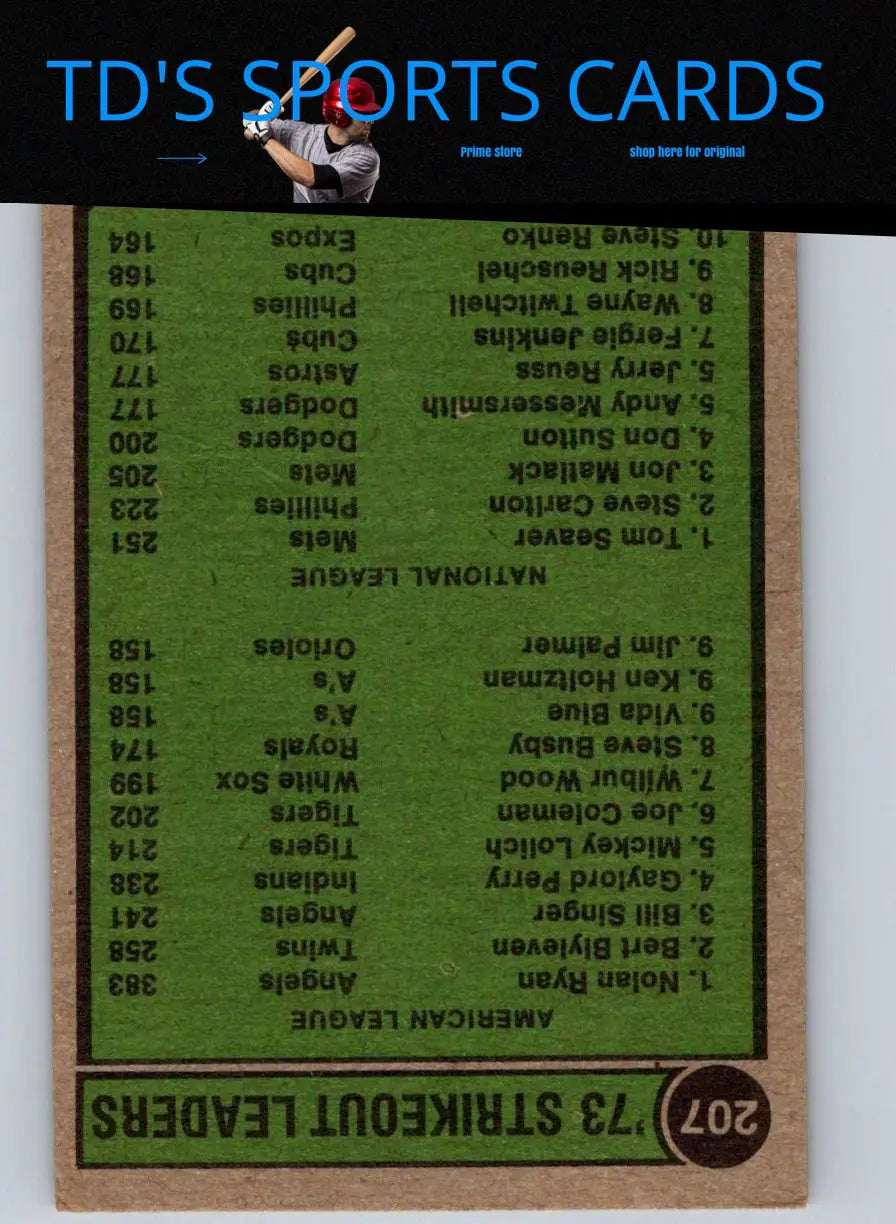 TD'S SPORTS CARDS
Prime store
shop here for original
207
'73 STRIKEOUT LEADERS
AMERICAN LEAGUE
1. Nolan Ryan Angels 383
2. Bert Blyleven Twins 258
3. Bill Singer Angels 241
4. Gaylord Perry Indians 238
5. Mickey Lolich Tigers 214
6. Joe Coleman Tigers 202
7. Wilbur Wood White Sox 199
8. Steve Busby Royals 174
9. Vida Blue A's 158
9. Ken Holtzman A's 158
9. Jim Palmer Orioles 158
NATIONAL LEAGUE
1. Tom Seaver Mets 251
2. Steve Carlton Phillies 223
3. Jon Matlack Mets 205
4. Don Sutton Dodgers 200
5. Andy Messersmith Dodgers 177
5. Jerry Reuss Astros 177
7. Fergie Jenkins Cubs 170
8. Wayne Twitchell Phillies 169
9. Rick Reuschel Cubs 168
10. Steve Renko Expos 164